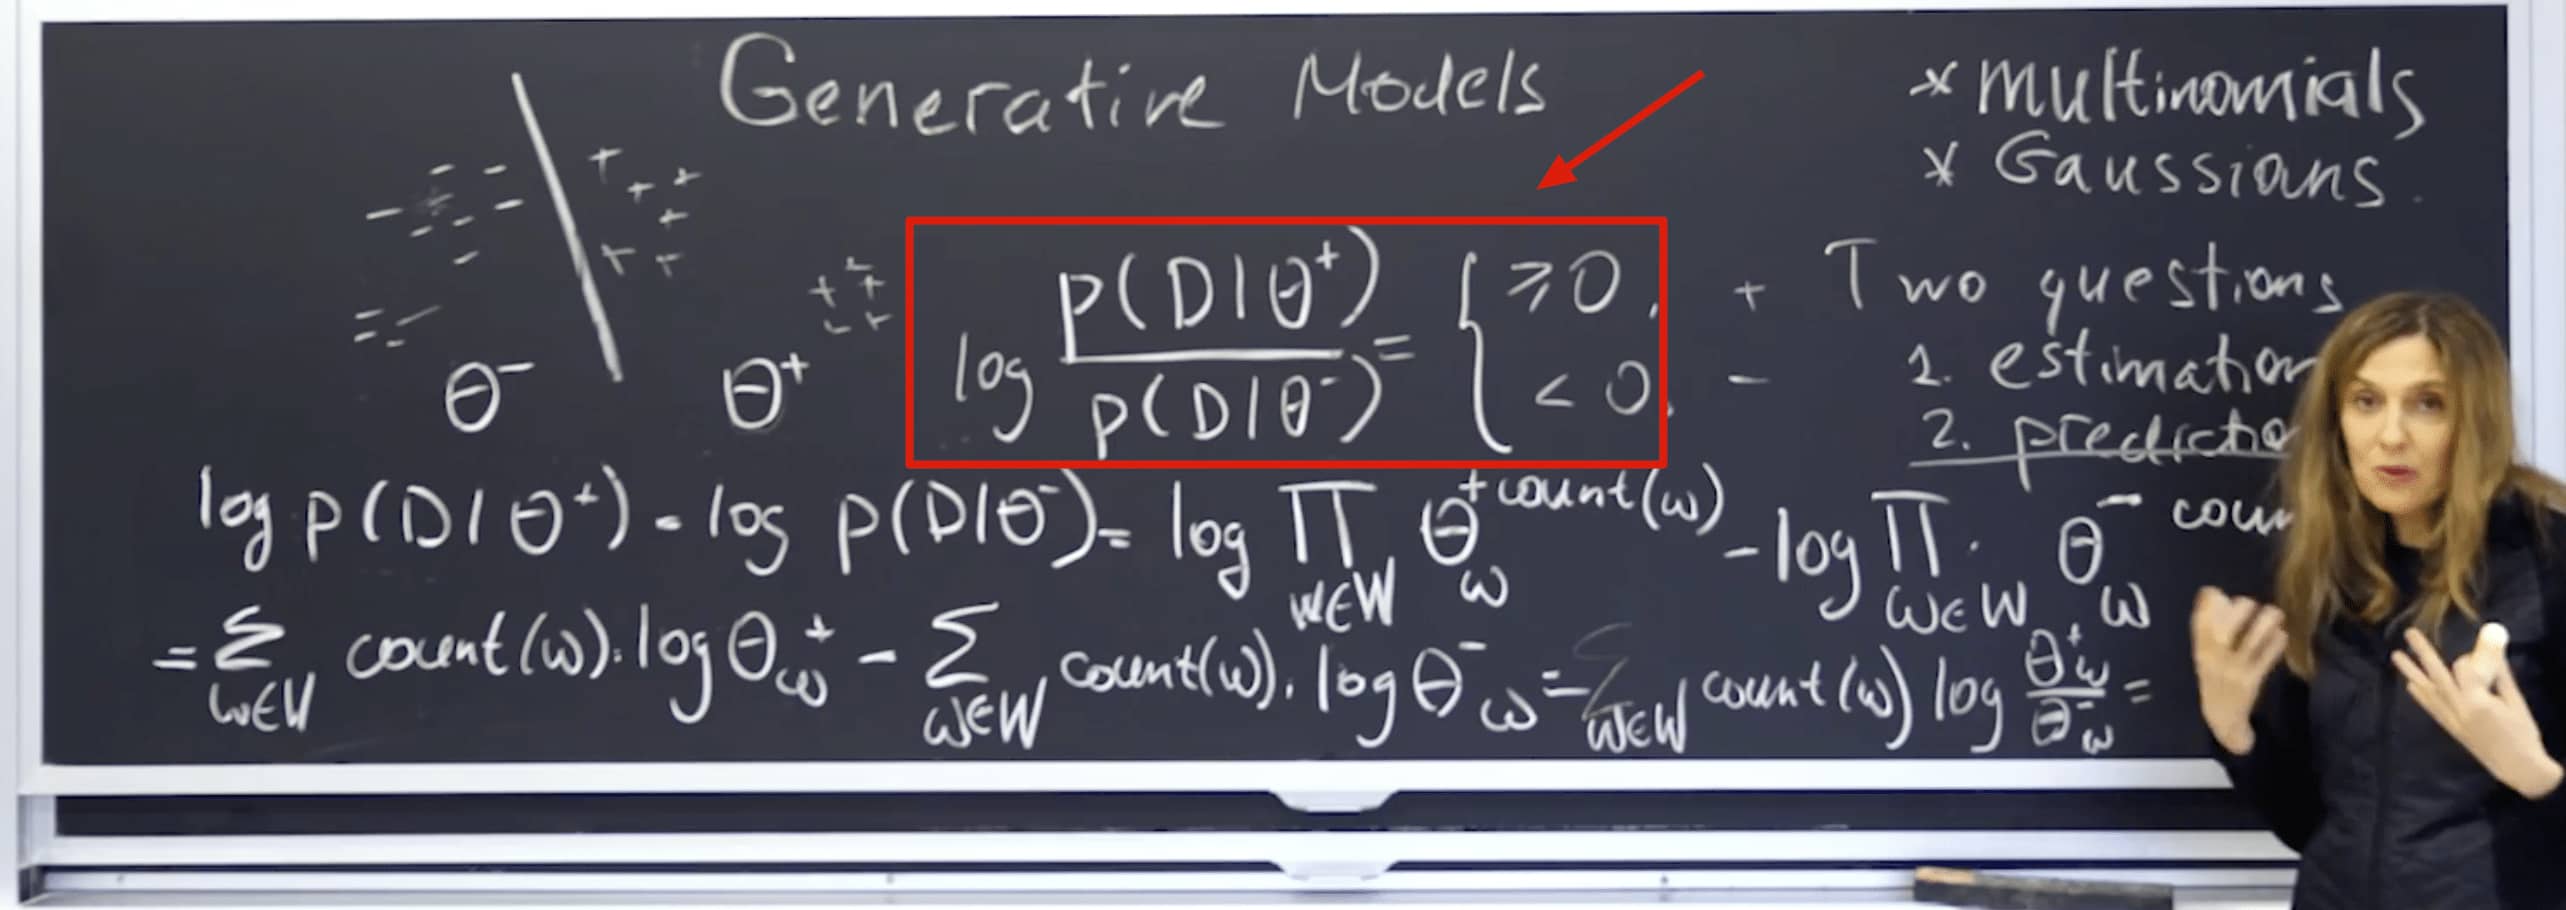 Generative Models
* Multinomials
* Gaussians.
θ⁻ θ⁺
log p(D|θ⁺) / p(D|θ⁻) = { ≥0, + < 0, -
Two questions
1. estimation
2. prediction
log p(D|θ⁺) - log p(D|θ⁻) = log ∏_{w∈W} θ_w^{+ count(w)} - log ∏_{w∈W} θ_w^{-}
= Σ_{w∈W} count(w)·log θ_w⁺ - Σ_{w∈W} count(w)·log θ_w⁻ = Σ_{w∈W} count(w) log θ_w⁺ / θ_w⁻ =